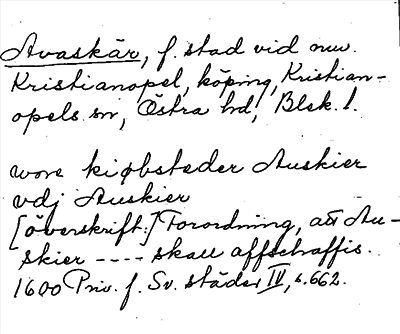 Avaskär, f. stad vid nuv.
Kristianopel, köping, Kristian-
opels sn, Östra hd, Blek. l.
wore kiøbsteder Auskier
vdj Auskier
[överskrift:] Forordning, att Au-
skier ---- skall affschaffis.
1600 Priv. f. Sv. städer IV, s. 662.